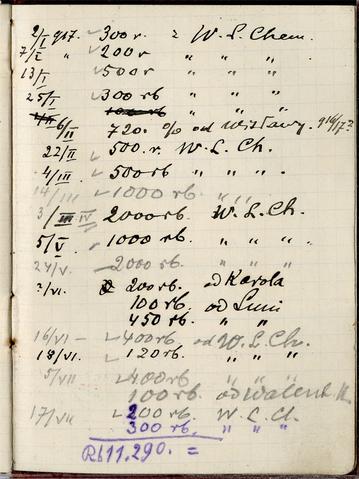 2/I 917. 300 r. z W. L. Chem.
7/I " 200 r " " " .
13/I 500 r " " " .
25/I 300 rb " " " .
100 rb
6/II 720. % od Wisławy. 916/17?
22/II 500. r. W. L. Ch.
4/III 500 rb " " " .
14/III 1000 rb. " "
3/IV 2000 rb. W. L. Ch.
5/V 1000 rb. " " " .
24/VI 2000 rb. " " "
?/VI. 200 rb. od Karola
100 rb. od Luni
450 rb. " "
16/VI - 400 rb. od W. L. Ch.
18/VI. 120 rb. " " "
5/VII 400 rb " " "
100 rb. od Walent.
17/VII 200 rb. W. L. Ch.
300 rb. " " "
Rb 11.290. =